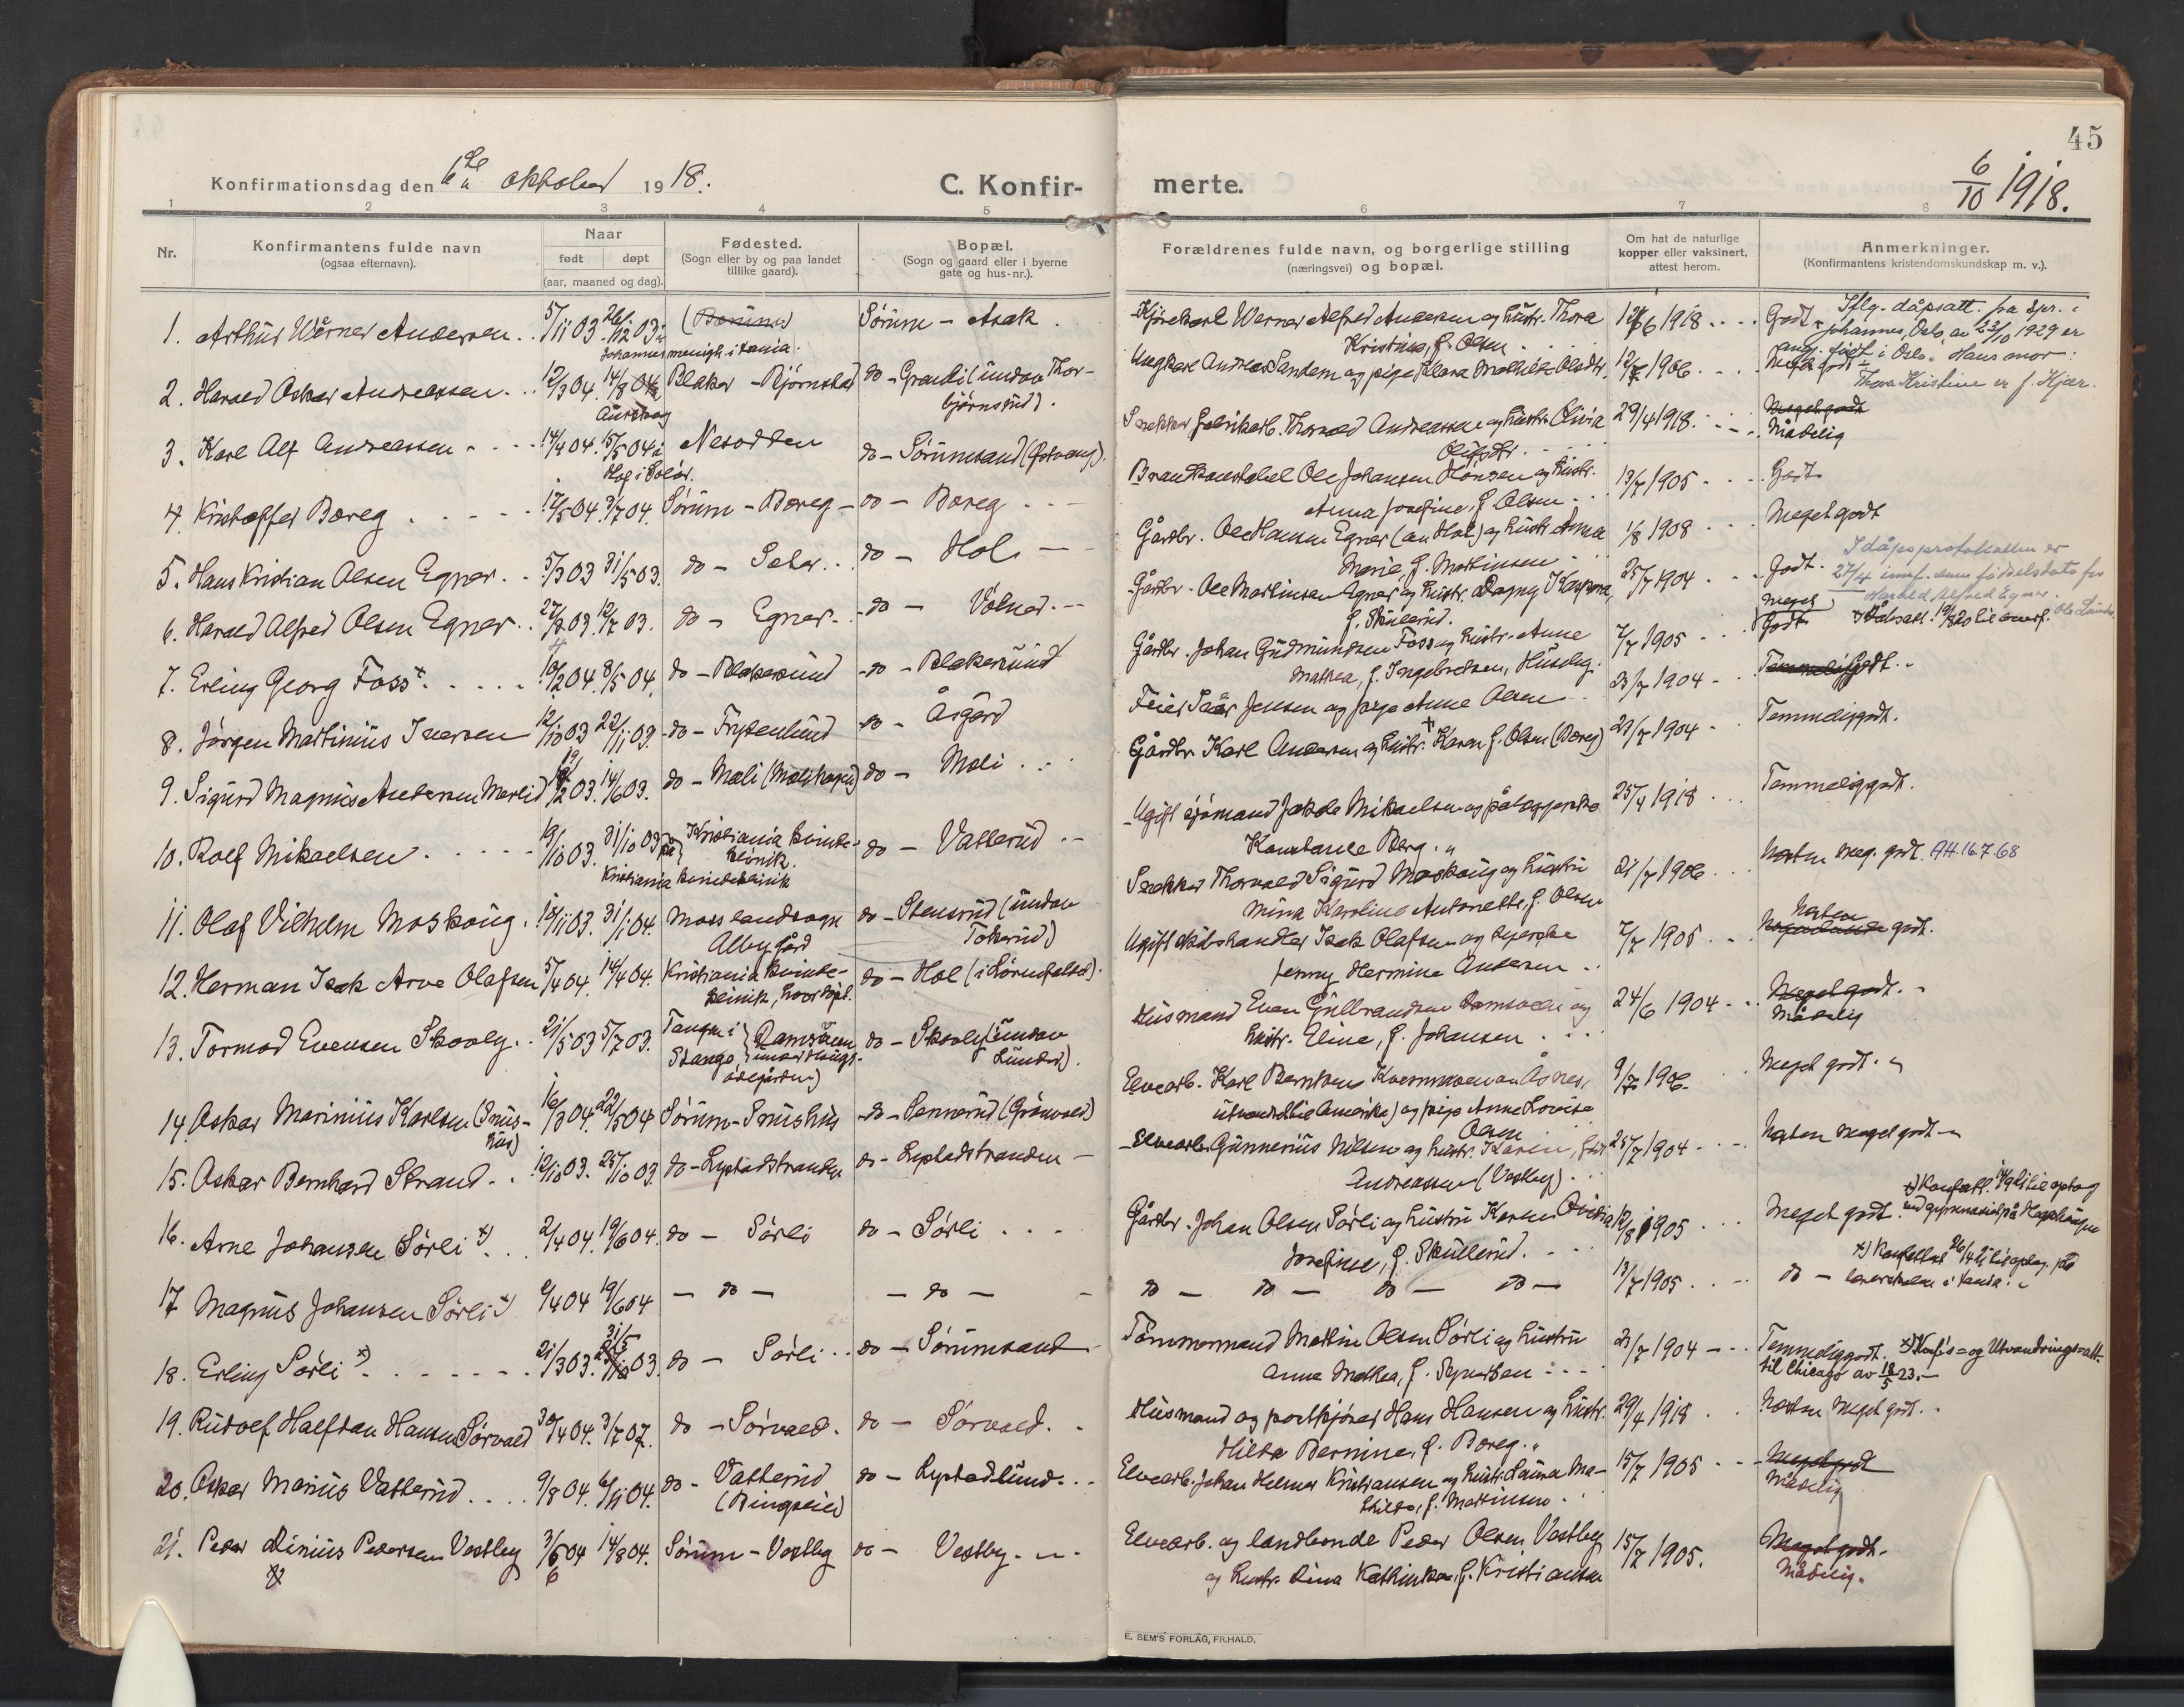 45
Konfirmationsdag den 6te oktober 1918.
C. Konfirmerte.
6/10 1918.
1 2 3 4 5 6 7 8
Nr.
Konfirmantens fulde navn
(ogsaa efternavn).
Naar
født døpt
(aar, maaned og dag).
Fødested.
(Sogn eller by og paa landet
tillike gaard).
Bopæl.
(Sogn og gaard eller i byerne
gate og hus-nr.).
Forældrenes fulde navn, og borgerlige stilling
(næringsvei) og bopæl.
Om hat de naturlige
kopper eller vaksinert,
attest herom.
Anmerkninger.
(Konfirmantens kristendomskundskap m. v.).
1. Arthur Werner Andersen 5/11 03 26/12 03 i (Bærum) Sørum - Asak
Johannes menigh. i Kania.
Kjørekarl Werner Alfred Andersen og hustr. Thora
Kristine, f. Olsen
6 1918 Godt
Iflg. dåpsatt. fra Spr. i
Johannes, Oslo, av 23/10 1929 er
ang. født i Oslo. Hans mor:
Thora Kristine er f. Kjær.
2. Harald Oskar Andreassen 12/3 04. 14/8 04 Blaker - Bjørnstad do - Grandi (undav Thor-
bjørnsrud).
Aurskog
Ungkarl Andreas Sandem og pige Klara Mathilde Olsdtr. 12/7 1906 Meget godt
3. Karl Alf Andreassen 14/4 04. 15/5 04 i Nesodden do - Sørumsand (Fotvang).
Hof i Solør.
Snekker fabrikarb. Thorvald Andreassen og hustr. Olivia
Olufsdtr.
29/4 1918. Meget godt
Mådelig
4. Kristoffer Boreg 12/5 04. 3/7 04. Sørum - Boreg - do - Boreg
Brandkonstabel Ole Johansen Hansen og hustr.
Anna Josefine, f. Olsen
13/7 1905 Godt
5. Hans Kristian Olsen Egner 5/3 03 31/5 03. do - Seter do - Hol
Gårdbr. Ole Hansen Egner (an Hol) og hustr. Anna
Marie, f. Martinsen
1/8 1908 Meget godt
6. Harald Alfred Olsen Egner 27/3 03. 12/7 03. do - Egner do - Vølner
4
Gårdbr. Ole Martinsen Egner og hustr. Dagny Kaspara,
f. Skullerud.
25/7 1904 Godt.
I dåpsprotokollen er
27/4 innf. som fødselsdato for
Harald Alfred Egner.
7. Erling Georg Foss x 10/2 04. 8/5 04. do - Blakersund do - Blakersund
Gårdbr. Johan Gudmundsen Foss og hustr. Anne
Mathea, f. Ingebretsen, Huseby.
7/7 1905 Meget
Godt
8. Jørgen Martinius Iversen 12/10 03 22/11 03. do - Frydenlund do - Åsgård
Feier Iver Jensen og pige Anne Olsen
23/7 1904 Temmelig Godt.
9. Sigurd Magnus Andersen Mæli 12/2 03. 14/6 03. do - Mæli (Mælihagen) do - Mæli
Gårdbr. Karl Andersen og hustr. Karen f. Olsen (Boreg) 23/7 1904 Temmeliggodt.
10. Rolf Mikaelsen 19/10 03. 31/10 03 på Kristiania kvinde-
klinik. do - Vatterud
Kristiania kvindeklinik
Ugift sjømand Jakob Mikaelsen og pålæggerske
Konstance Berg.
25/4 1918 Temmeliggodt.
11. Olaf Vilhelm Moskoug 18/11 03. 31/1 04. Moss landsogn do - Stensrud (undav
Albygård Tokerud)
Snekker Thorvald Sigurd Moskoug og hustru
Mina Karoline Antonette, f. Olsen
21/7 1906 Næsten meg. godt. AH.16.7.68
12. Herman Isak Arve Olafsen 5/4 04. 14/4 04. Kristiania kvinde-
klinik, hvor døpt. do - Hol (i Sørumfaltet).
Ugift skibshandler Isak Olafsen og syerske
Jenny Hermine Andersen
7/7 1905 Næsten
Nogenlunde godt.
13. Tormod Evensen Skovly 21/5 03 5/7 03. Tangen i
Stange do - Skovly (undav
Lunder).
Husmand Even Gulbrandsen Damsveen og
hustr. Eline, f. Johansen
24/6 1904 Meget godt.
Mådelig
14 Oskar Marinius Karlsen (Snushus) 16/3 04. 22/5 04 Sørum - Snushus do - Sennerud (Grønvold)
Elvearb. Karl Berntsen Kvernmoen an Åsnes,
utvandr. til Amerika) og pige Anne Lovise
Olsen
9/7 1906 Meget godt.
15. Oskar Bernhard Strand 12/10 03. 25/10 03. do - Lystadstranden do - Lystadstranden
Elvearb. Gunnerius Nilsen og hustr. Karen, født
Andreassen (Vestby).
25/7 1904 Næsten meget godt
16. Arne Johansen Sørli x) 2/4 04. 19/6 04. do - Sørli do - Sørli
Gårdbr. Johan Olsen Sørli og hustru Karen Ovidia
Josefine, f. Skullerud.
12/8 1905 Meget godt.
17 Magnus Johansen Sørli x) 2/4 04 19/6 04 - do - - do -
do - do - do - do -
13/7 1905 do -
18. Erling Sørli x) 21/3 03. 31/5 03. do - Sørli do - Sørumsand
Tømmermand Martin Olsen Sørli og hustru
Anna Mathea, f. Syversen
23/7 1904 Temmeliggodt. x) Konf.s- og Utvandrings-att.
til Chicago av 18/5 23.
19. Rudolf Halfdan Hansen Sørvald 30/4 04. 3/7 07. do - Sørvald. do - Sørvald.
Husmand og postkjører Hans Hansen og hustr.
Hilda Bernine, f. Boreg.
29/4 1918 Næsten Meget godt.
20. Oskar Marius Vatterud 9/8 04. 6/11 04. do - Vatterud
(Ringseie) do - Lystadlund.
Elvearb. Johan Helmer Kristiansen og hustr. Laura Ma-
thilde, f. Martinsen
15/7 1905 Meget godt
Mådelig
21. Peder Linius Pedersen Vestby 3/6 04 14/8 04. Sørum - Vestby do - Vestby.
x) 6
Elvearb. og landbonde Peder Olsen Vestby
og hustr. Lina Kathinka, f. Kristiansen
15/7 1905. Meget godt.
Mådelig.
E. SEM'S FORLAG, FR.HALD.